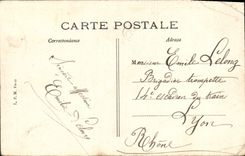 CARTE POSTALE
Correspondance
Adresse
Monsieur Emile Lelong
Brigadier trompette
14e escadron du train
Lyon
Rhône
Emile Lelong